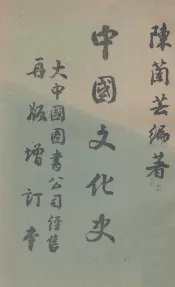 陳蘭芸編著
中國文化史
大中國圖書公司經售
再版增訂本